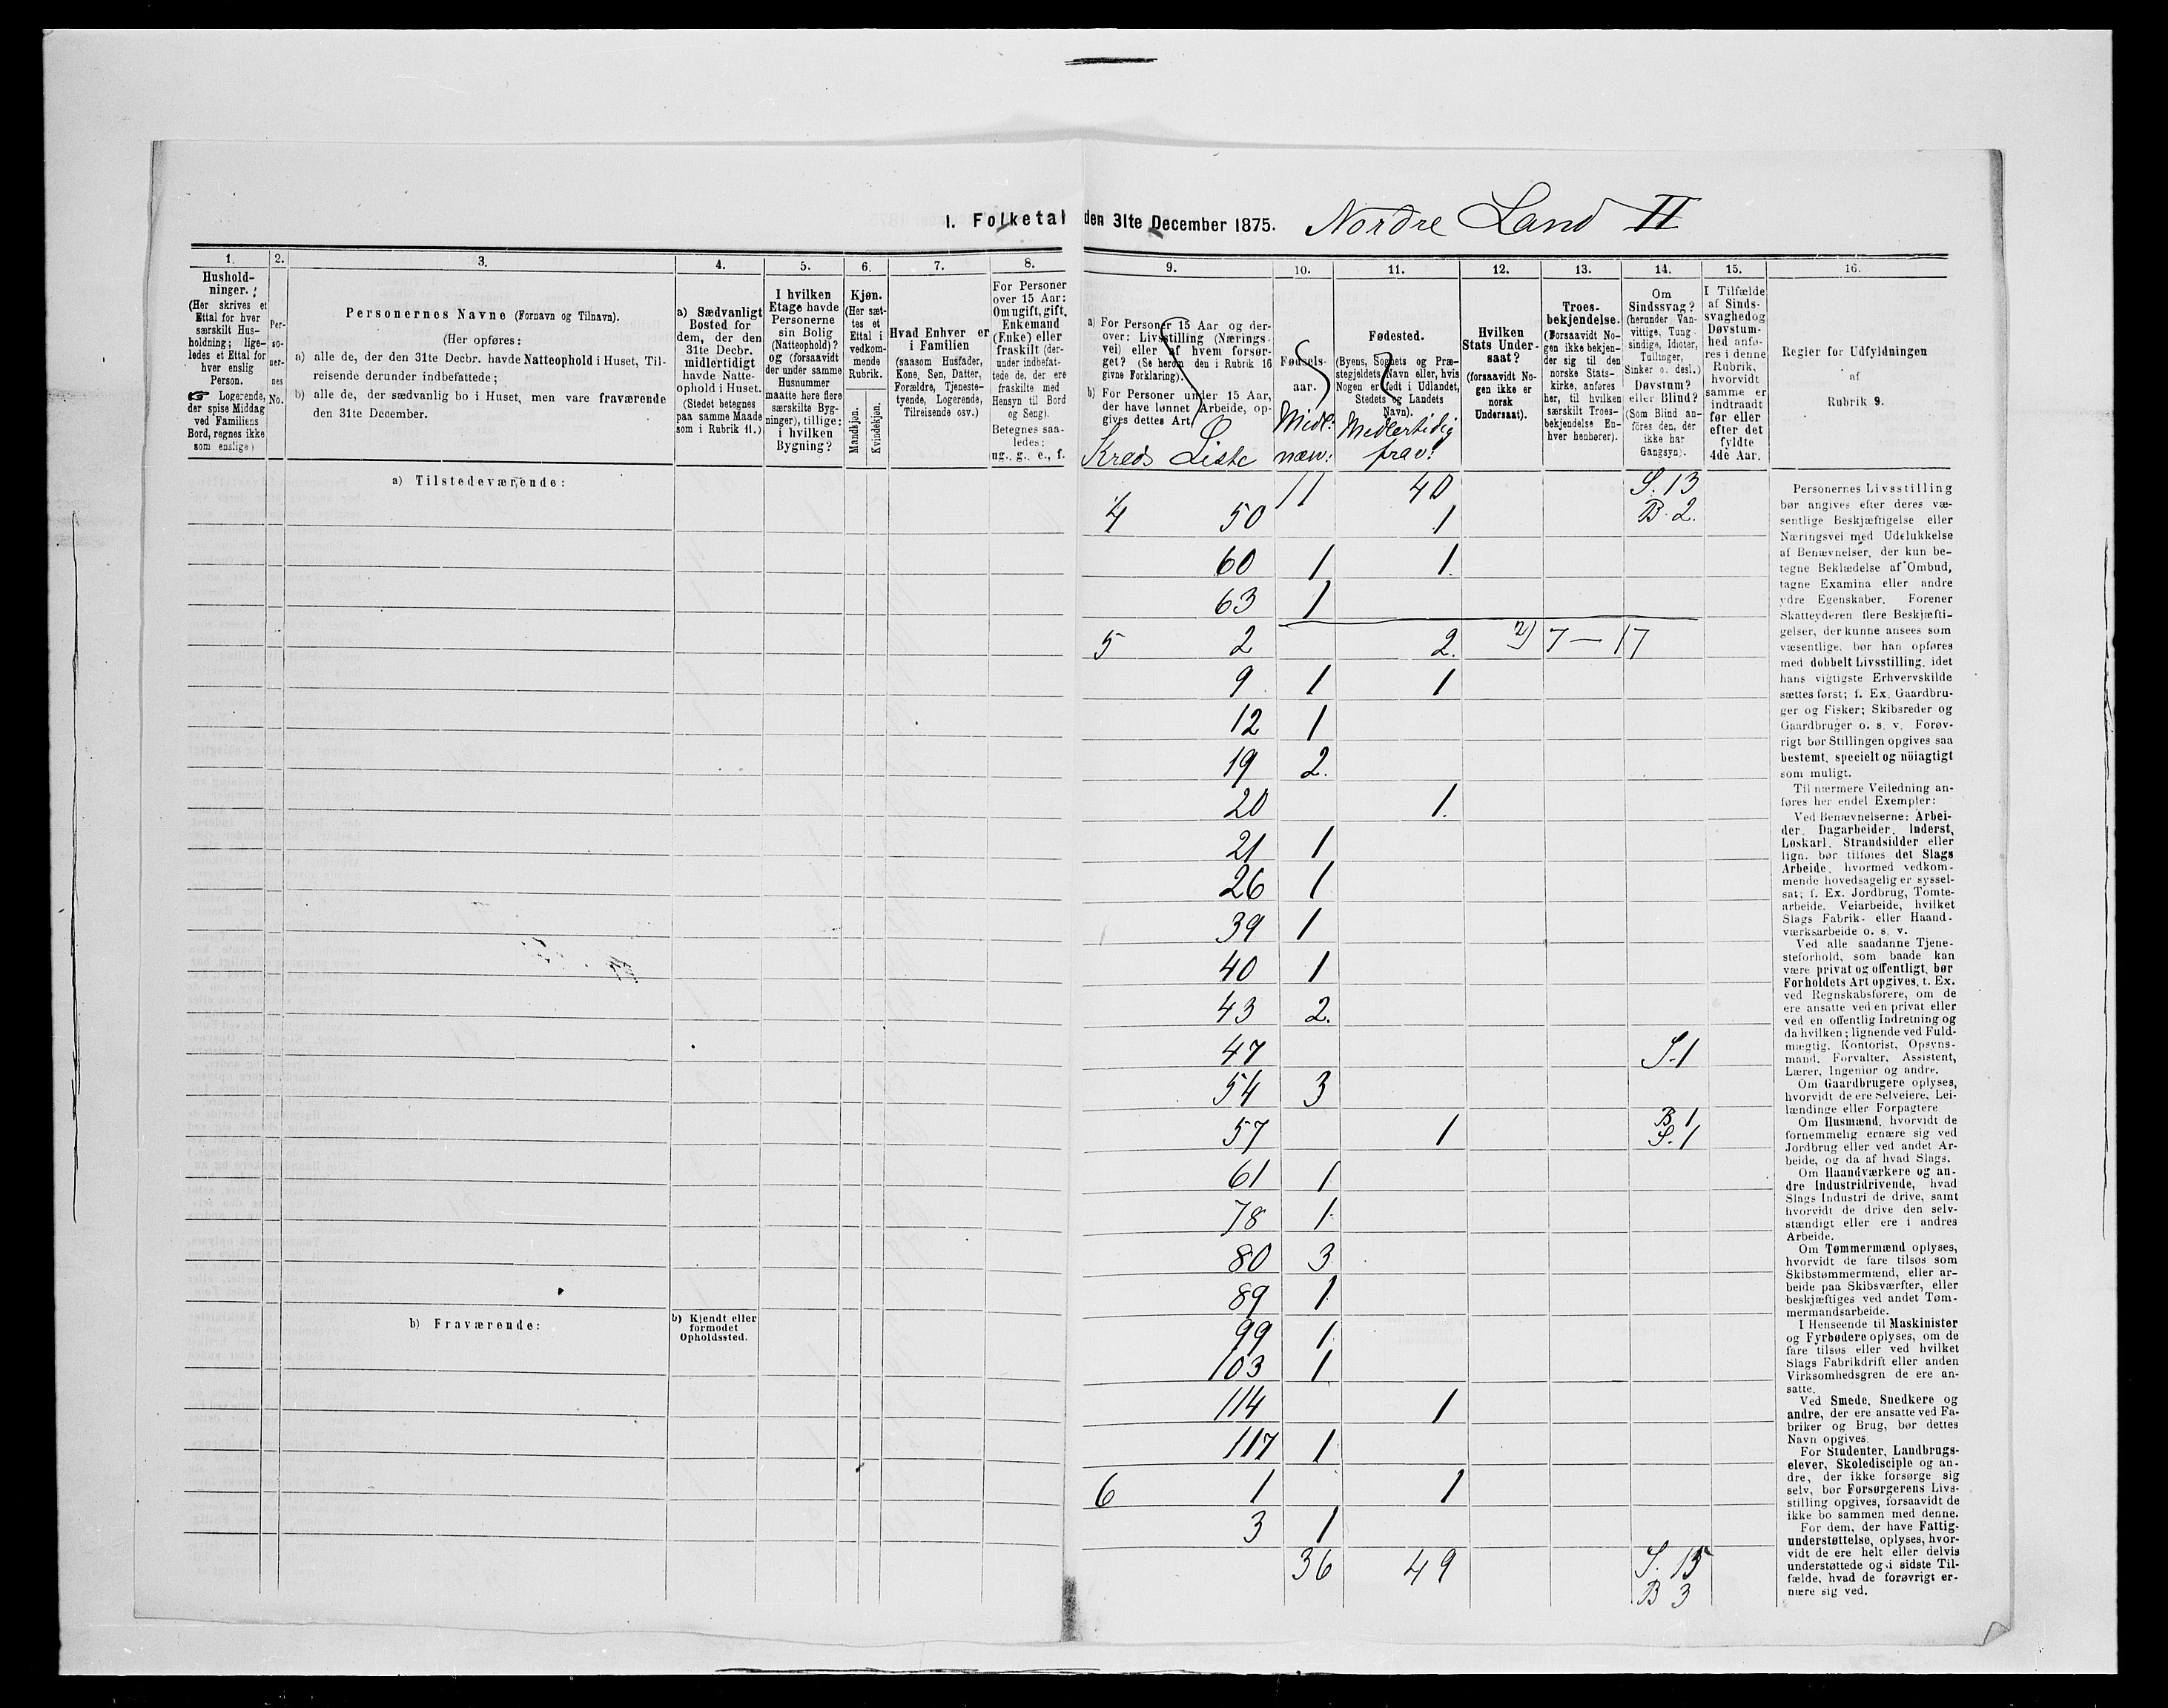 I. Folketal den 31te December 1875. Nordre Land II
1.
Hushold-
ninger.
(Her skrives et
Ettal for hver
særskilt Hus-
holdning; lige-
ledes et Ettal for
hver enslig
Person.
Logerende,
der spise Middag
ved Familiens
Bord, regnes ikke
som enslige)
2.
Per-
so-
ner-
nes
No.
3.
Personernes Navne (Fornavn og Tilnavn).
(Her opføres:
a) alle de, der den 31te Decbr. havde Natteophold i Huset, Til-
reisende derunder indbefattede;
b) alle de, der sædvanlig bo i Huset, men vare fraværende
den 31te December.
4.
a) Sædvanligt
Bosted for
dem, der den
31te Decbr.
midlertidigt
havde Natte-
ophold i Huset.
(Stedet betegnes
paa samme Maade
som i Rubrik 11.)
5.
I hvilken
Etage havde
Personerne
sin Bolig
(Natteophold)?
og (forsaavidt
der under samme
Husnummer
maatte høre flere
særskilte Byg-
ninger), tillige:
i hvilken
Bygning?
6.
Kjøn.
(Her sæt-
tes et
Ettal i
vedkom-
mende
Rubrik.
Mandkjøn.
Kvindekjøn.
7.
Hvad Enhver er
i Familien
(saasom Husfader,
Kone, Søn, Datter,
Forældre, Tjeneste-
tyende, Logerende,
Tilreisende osv.)
8.
For Personer
over 15 Aar:
Om ugift, gift,
Enkemand
(Enke) eller
fraskilt (der-
under indbefat-
tede de, der ere
fraskilte med
Hensyn til Bord
og Seng).
Betegnes saa-
ledes:
ug., g., e., f.
9.
a) For Personer 15 Aar og der-
over: Livsstilling (Nærings-
vei) eller af hvem forsør-
get? (Se herom den i Rubrik 16
givne Forklaring).
b) For Personer under 15 Aar,
der have lønnet Arbeide, op-
gives dettes Art.
Kreds Liste
10.
Fødsels-
aar.
Midl:
nærv:
11.
Fødested.
(Byens, Sognets og Præ-
stegjeldets Navn eller, hvis
Nogen er født i Udlandet,
Stedets og Landets
Navn).
Midlertidig
frav:
12.
Hvilken
Stats Under-
saat?
(forsaavidt No-
gen ikke er
norsk
Undersaat).
13.
Troes-
bekjendelse.
(Forsaavidt No-
gen ikke bekjen-
der sig til den
norske Stats-
kirke, anføres
her, til hvilken
særskilt Troes-
bekjendelse En-
hver henhører).
14.
Om
Sindssvag?
(herunder Van-
vittige, Tung-
sindige, Idioter,
Tullinger,
Sinker o. desl.)
Døvstum?
eller Blind?
(Som Blind an-
føres den, der
ikke har
Gangsyn).
15.
I Tilfælde
af Sinds-
svaghed og
Døvstum-
hed anfø-
res i denne
Rubrik,
hvorvidt
samme er
indtraadt
før eller
efter det
fyldte
4de Aar.
16.
Regler for Udfyldningen
af
Rubrik 9.
a) Tilstedeværende:
11 40 S. 13
4 50 1 B. 2.
60 1 1.
63 1
5 2 2. 2) 7 — 17
9 1 1
12 1
19 2.
20 1.
21 1
26 1
39 1
40 1
43 2.
47 S.1
54 3
57 1 B 1
S.1
61 1
78 1
80 3
89 1
b) Fraværende:
b) Kjendt eller
formodet
Opholdssted.
99 1
103 1
114 1
117 1
6 1 1
3 1
36 49 S. 15
B 3
Personernes Livsstilling
bør angives efter deres væ-
sentlige Beskjæftigelse eller
Næringsvei med Udelukkelse
af Benævnelser, der kun be-
tegne Beklædelse af Ombud,
tagne Examina eller andre
ydre Egenskaber. Forener
Skatteyderen flere Beskjæfti-
gelser, der kunne ansees som
væsentlige, bør han opføres
med dobbelt Livsstilling, idet
hans vigtigste Erhvervskilde
sættes først; f. Ex. Gaardbru-
ger og Fisker; Skibsreder og
Gaardbruger o. s. v. Forøv-
rigt bør Stillingen opgives saa
bestemt, specielt og nöiagtigt
som muligt.
Til nærmere Veiledning an-
føres her endel Exempler:
Ved Benævnelserne: Arbei-
der, Dagarbeider, Inderst,
Løskarl, Strandsidder eller
lign. bør tilføies det Slags
Arbeide, hvormed vedkom-
mende hovedsagelig er syssel-
sat; f. Ex. Jordbrug, Tomte-
arbeide, Veiarbeide, hvilket
Slags Fabrik- eller Haand-
værksarbeide o. s. v.
Ved alle saadanne Tjene-
steforhold, som baade kan
være privat og offentligt, bør
Forholdets Art opgives, f. Ex.
ved Regnskabsførere, om de
ere ansatte ved en privat eller
ved en offentlig Indretning og
da hvilken; lignende ved Fuld-
mægtig, Kontorist, Opsyns-
mand, Forvalter, Assistent,
Lærer, Ingeniør og andre.
Om Gaardbrugere oplyses,
hvorvidt de ere Selveiere, Lei-
lændinge eller Forpagtere
Om Husmænd, hvorvidt de
fornemmelig ernære sig ved
Jordbrug eller ved andet Ar-
beide, og da af hvad Slags.
Om Haandværkere og an-
dre Industridrivende, hvad
Slags Industri de drive, samt
hvorvidt de drive den selv-
stændigt eller ere i andres
Arbeide.
Om Tømmermænd oplyses,
hvorvidt de fare tilsøs som
Skibstømmermænd, eller ar-
beide paa Skibsværfter, eller
beskjæftiges ved andet Tøm-
mermandsarbeide.
I Henseende til Maskinister
og Fyrbødere oplyses, om de
fare tilsøs eller ved hvilket
Slags Fabrikdrift eller anden
Virksomhedsgren de ere an-
satte.
Ved Smede, Snedkere og
andre, der ere ansatte ved Fa-
briker og Brug, bør dettes
Navn opgives.
For Studenter, Landbrugs-
elever, Skoledisciple og an-
dre, der ikke forsørge sig
selv, bør Forsørgerens Livs-
stilling opgives, forsaavidt de
ikke bo sammen med denne.
For dem, der have Fattig-
understøttelse, oplyses, hvor-
vidt de ere helt eller delvis
understøttede og i sidste Til-
fælde, hvad de forøvrigt er-
nære sig ved.